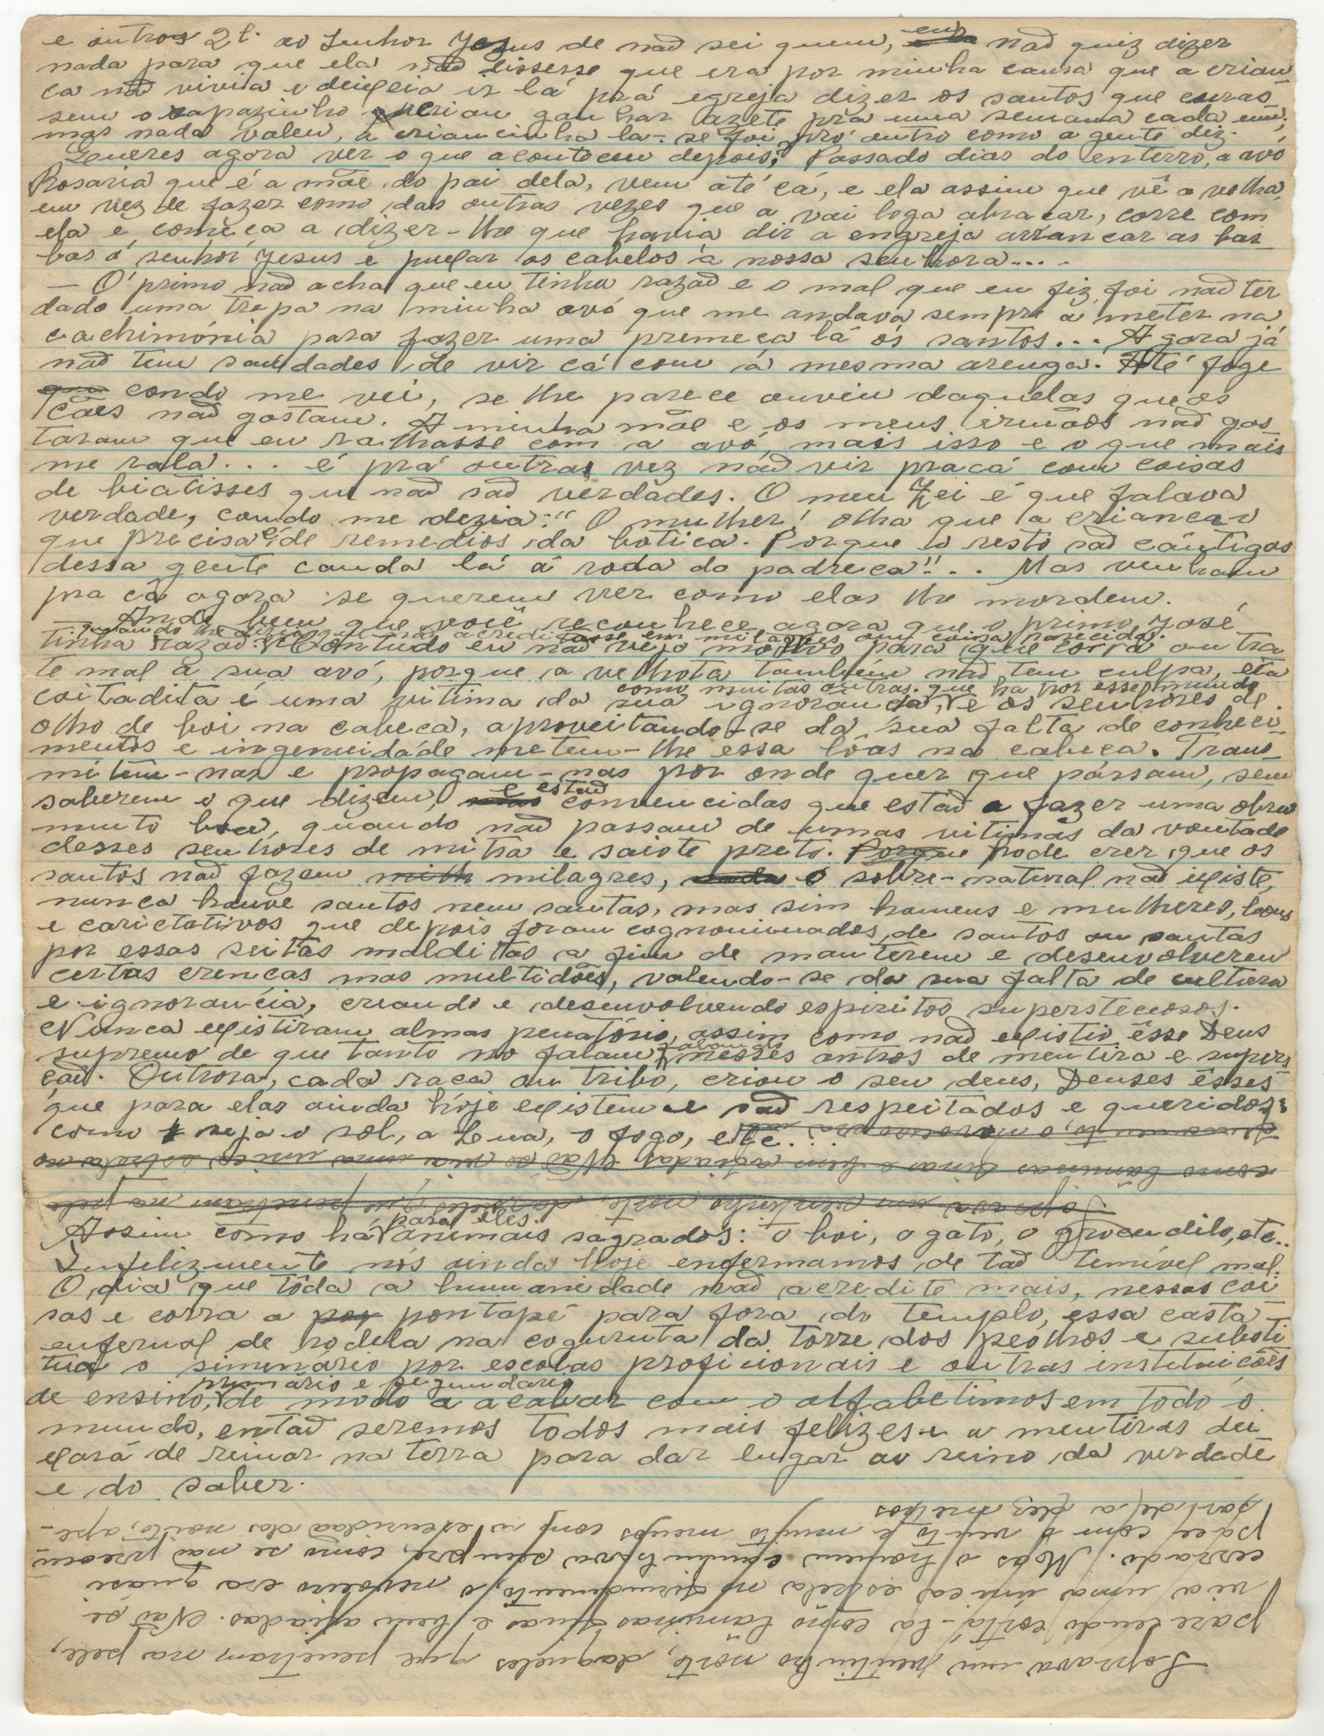 e outros 2l. ao Senhor Jesus de não sei quem, eu não quiz dizer
nada para que ela não dissesse que era por minha causa que a crian
ca não vivia e deixeia ir lá prá egreja dizer os santos que curas
sem o rapazinho qveriam ganhar azete pra uma semana cada um;
mas nada valeu, a criancinha la-se foi pró outro como a gente diz.
Zeueres agora ver o que acontoceu depois; Passado dias do enterro, a avó
Rosaria que é a mãe do pai dela, vem até cá, e ela assim que vê a velha,
em vez de fazer como das outras vezes que a vai loga abracar, corre com
ela e comeca a dizer-lhe que havia dir a engreja arrancar as bar
bas ó senhor Jesus e puxar os cabelos á nossa senhora....
— O primo não acha que eu tinha razão e o mal que eu fiz foi não ter
dado uma trepa na minha avó que me andava sempre a meter na
cachimónia para fazer uma premeca lá ós santos... Agora já
não tem saudades de vir cá com a mesma arenga. Até foge
condo me vei, se lhe parece ouviu daquelas que os
cães não gostam. A minha mãe e os meus irmãos não gos
taram que eu ralhasse com a avó, mais isso e o que mais
me rala... é prá outra vez não vir pracá com coisas
de biatisses que não são verdades. O meu Zei é que falava
verdade, condo me dezia:" O mulher! olha que a crianca o
que precisa é de remedios da botica. Porque o resto são cântigos
dessa gente canda lá á roda do padreca"!.. Mas venham
pra cá agora se querem ver como elas lhe mordem.
— Ande bem que você reconhece agora que o primo José
quando lhe dizia que não acreditasse em milagres ouy coisa parecida.
tinha razão. Contudo eu não vejo motivo para que corra outra
te mal a sua avó, porque a velhota também não tem culpa, ela
como muitas outras que ha por esse mundo
coitadita é uma vitima da sua ignorancia, e os senhores de
olho de boi na cabeca, aproveitando-se da sua falta de conheci
mentos e ingenuidade metem-lhe essa lôas na cabeca. Trans
mitem-nas e propagam-nas por onde quer que pássam, sem
saberem o que dizem, e estão convencidas que estão a fazer uma obra
muito boa, quando não passam de umas vitimas da vontade
desses senhores de mitra e saiote preto. Porque pode crer que os
santos não fazem milagres, o sobre-natural não existe,
nunca houve santos nem santas, mas sim homens e mulheres, bons
e carictativos que depois foram cognominados de santos ou santas
por essas seitas malditas a fim de manterem e desenvolverem
certas crencas mas multidões, valendo-se da sua falta de cultura
e ignorancia, creando e desenvolvendo espiritos superstecosos.
Nunca existiram almas penatório, assim como não existio êsse Deus
supremo de que tanto no falam nesses antros de mentira e supers
cão. Outrora, cada raca ou tribo, criou o seu deus, Deuses êsses
que para elas ainda hoje existem e são respeitados e queridos;
como seja o sol, a Lua, o fogo, etc...
Assim como há para eles animais sagrados: o boi, o gato, o grocudilo, etc..
Infelizmente nós ainda hoje enfermamos de tão temível mal.
O dia que tôda a humanidade não acredite mais, nessas coi
sas e corra a pontapé para fora do templo, essa casta
enfernal de rodela na coguruta da torre dos peolhos e substi
tua o siminario por escolas proficionais e outras instituicões
de ensino, primário e segundario de modo a acabar com o alfabetimos em todo o
mundo, então seremos todos mais felizes e a mentiras dei
xará de reinar na terra para dar lugar ao reino da verdade
e do saber.
Soprava um ventinho norte, daqueles que penetram na pele,
parecendo cortá-la como laminas finas e bem afiadas. Não se
via uma única estrela no firmamento, o nevoeiro era quasi
cerrado. Mas o homem caminhava sempre, como se não preocu
pace com o vento e muito menos com a escuridão da noite, ape-
sar de a dez metros